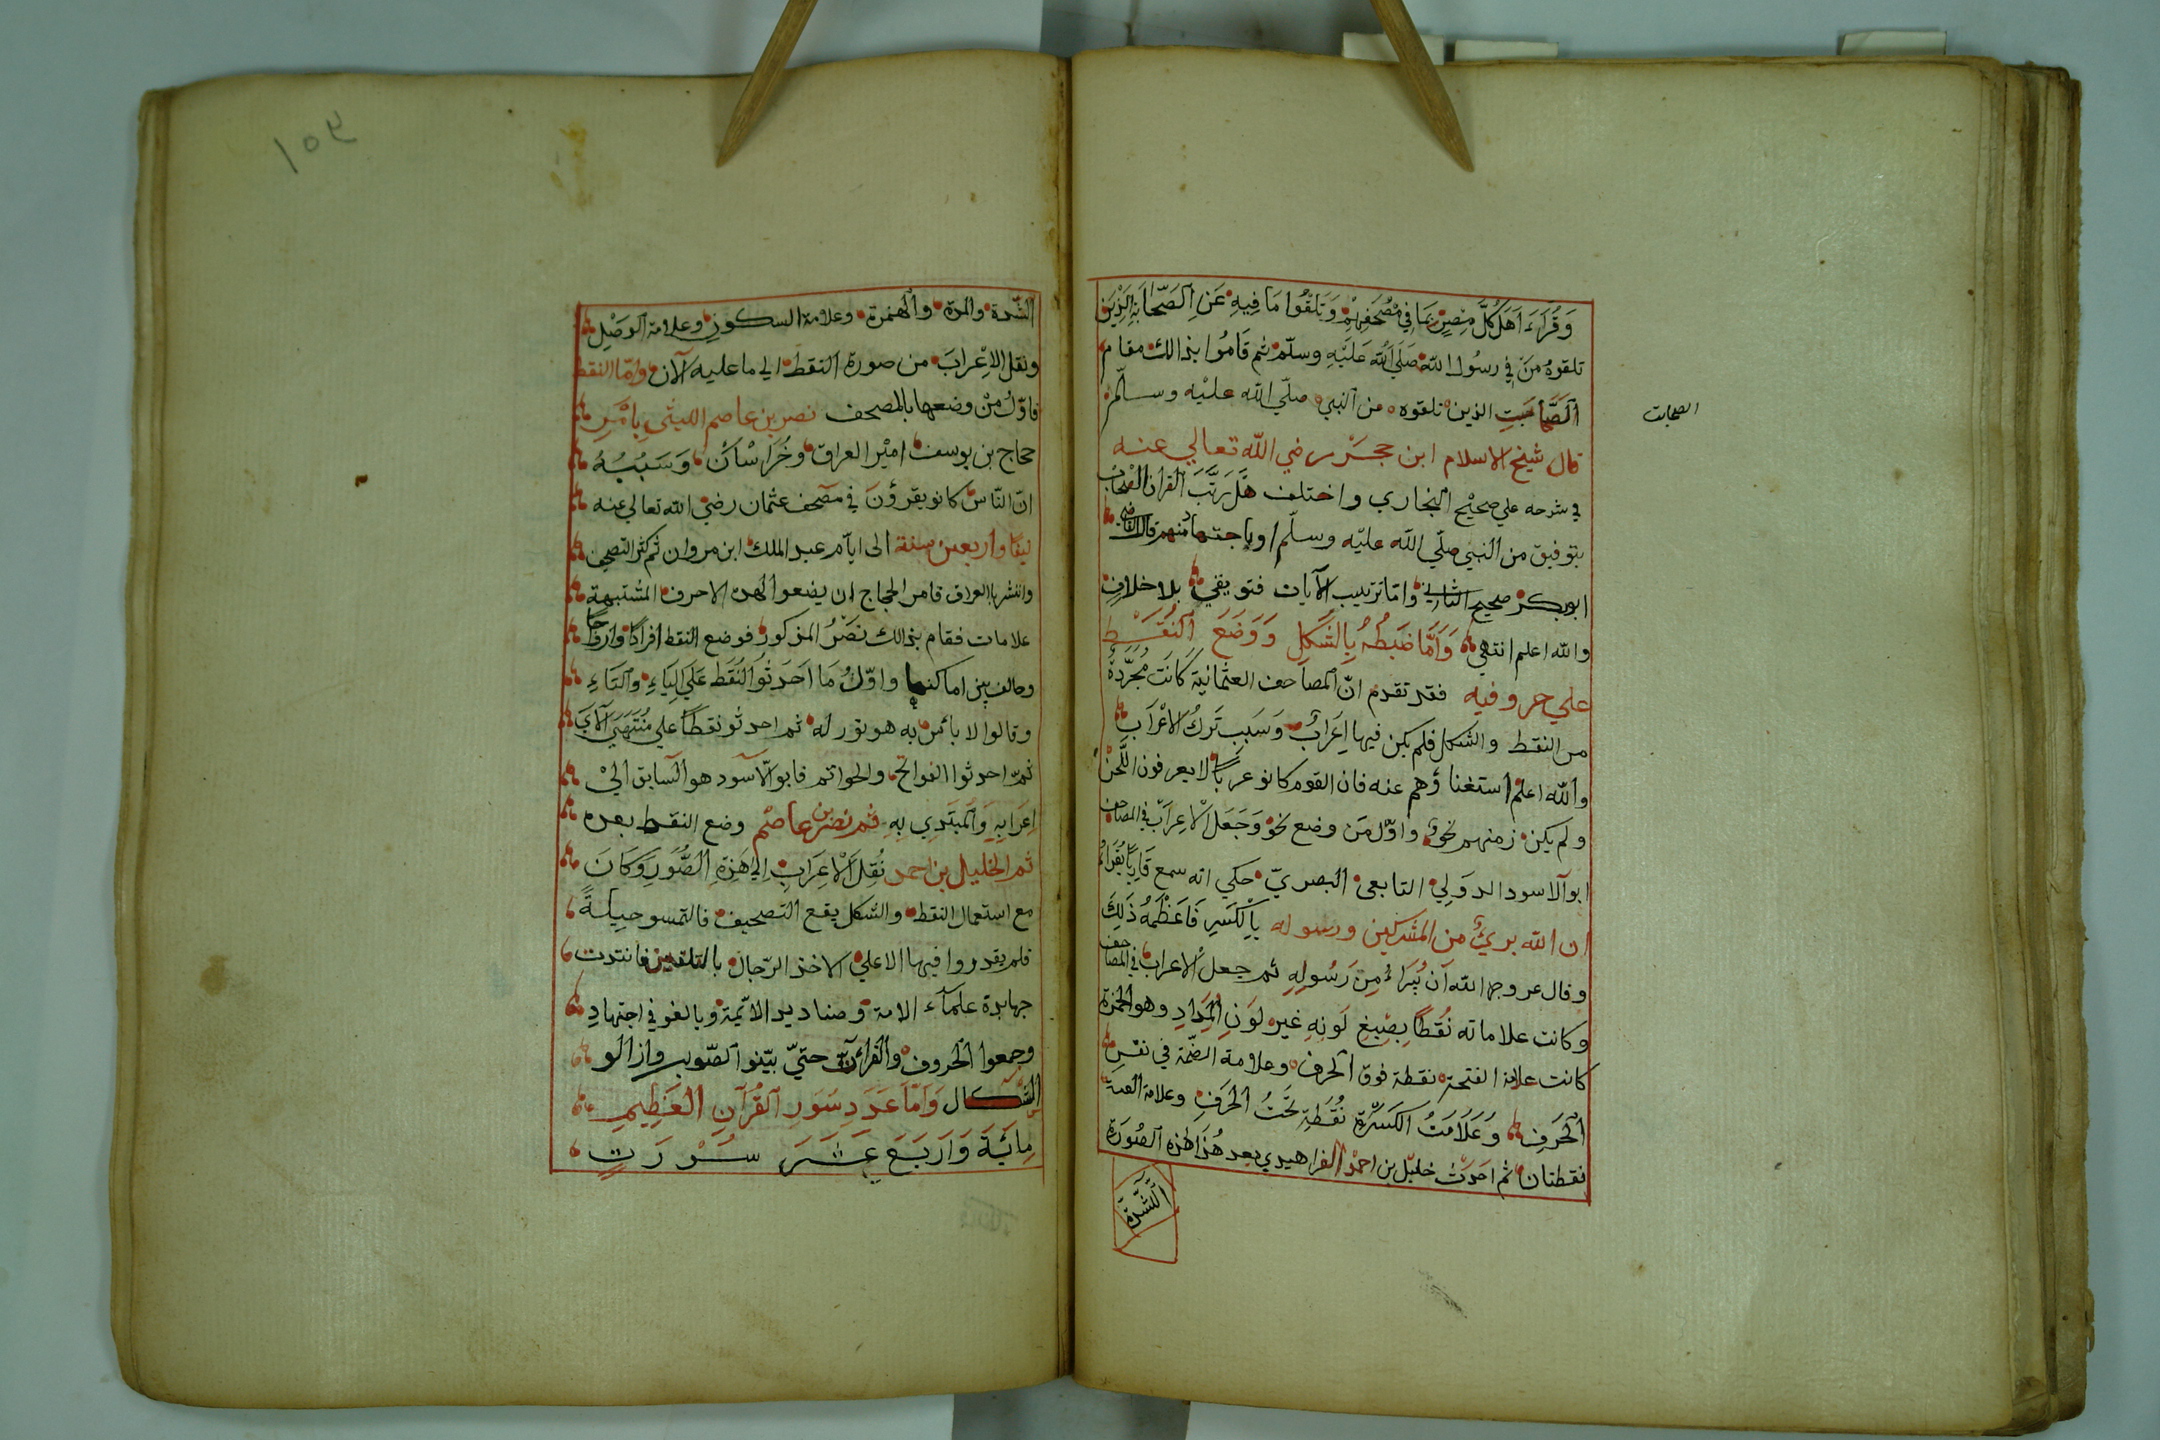 وَقُرَاءَ اَهَلَ كُلَّ مِصِرِ بمَا في مُصْحَفِهِمْ وَتَلَقُوا مَا فِيهِ عَنِ اَلصَّحَابَةِ اَلَذِيَن
تلقوهُ مَن في رسُول اللّه صَلَي اللّه عَلَيَهِ وسلّم ثم قَامُوا بذالك مقام
اَلصَّحَابَتِ الذين تلقوه من النبي صلّي اللّه عليْه وسلّم
الصحابت
قال شيخ الاسلام ابن حجَرْ رضي اللّه تعالي عنه
في شرحه علي صحيْح البخاري واختلف هَل رَتَّبَ القران الصْحاب
بتوفيق من النبي صلّي اللّه عليّه وسلّم اوباجتهاد منهم قال القاضي
ابوبكر صحيح الثاني وامّا ترتيب الآيات فتويقي بلا خلاف
واللّه اعلم انتهي وَاَمَّا ضَبطُهُ بِالشَّكلِ وَوَضَعَ النُقَطِ
علي حروفيه فقد تقدم انّ المصاحف العثمانية كَانَت مُجَرَّدةً
من النقط والشكل فلم يكن فيها اِعَرابُ وَسَبب تَركُ الاعْرَاب
واللّه اعلم استغناؤهم عنه فان القوم كانو عرباً لا يعرفون اللَّحنَ
ولم يكن زمنهم نحوٌ واوّل مَن وضع نحوْ وَجَعَل الاعِرَابَ في المصاحف
ابوآلاسود الدولِي التابعي البصريّ حكي انه سمع قَارِيًا يُقَرا
ان اللّه بريٌ من المشركين ورسوله بِالكَسرِ فَاعَظَمَهُ ذَلِكَ
وقال عز وجه اللّه اَن يُبَراءُ مِن رَسُولِهِ ثم جعل الاعراب في المصاحف
وكانت علاماته نُقَطاً بِصِبغِ لَونِهِ غير لَوَنِ المَِدادِ وهو الحمرة
كانت علامة الفتحة نقطة فوق الَحرف وعلامة الضّمّة في نفسِ
اَلحَرَفِ وَعَلَامَتُ الكَسَرّةِ نُقَطِةِ تَحَتُ الحَرفِ وعلامة الغنة
نقطتان ثم احَدَث خليل بن احمد الفراهيدي بعد هُذَا هٰذه الصُورَة
اَلشَّدَّة
١٥٤
الشّدة والمدة والهَمزة وعلامة السكون وعلامة الوصِل
ونقل الاِعْرابَ من صورة النقط الي ما عليه الآن وامّا النقط
فاوّلُ مَنْ وضعها بالمصحف نصر بن عاصم الليثي باَمْرِ
حجاج بن يوسف اميْر العراق وخُرَاسْان وَسَبُبُهُ
انّ النّاسَ كانو يقرؤنَ في مصْحف عثمان رضي اللّه تعالي عنه
نيفًا واربعين سنة الي ايآم عبد الملك ابن مروان ثم كثر التصحيف
وانتشر بالعراق فامر الحجاج ان يضعوا لهذه الاحرف المشتبهة
علامات فقام بذالك نصْرُ المذكور فوضع النقط افرادًا وازواجًا
وخالف بين اماكنها واوّلُ مَا اَحدَثُوا النُقَط عَلَي اليَاءِ واَلتَاءِ
وقالوا لا بائس به هو نور له ثم احدثو نقطاً علي مُنتَهَي الآيَ
ثمّ احدثوا الفواتح والخواتم فابو الآسود هو السّابق اليْ
اِعَرابِهِ وَالمُبتَدِي بِهِ ثم نصر بن عاصم وضع النقط بعده
ثم الخليل بن احمد نُقِل الاِعَرَابِ اِلي هَذِهِ الصُّوَرِ وَكَانَ
مع استعمال النقط والشكل يقع التصحيف فالتمسو حيلَةً
فلم يقدروا فيها الا علي الاخذ الرّجال بالتلقين فانتدت
جهابدة علمآء الامة وصناديد الائمّة وبالغو في اجتهادِ
وجمعوا الحروف والقرائات حتيّ بيّنو الصّوب وازالو
الشكال وَامّا عَدَدِ سُوَرِ القُرآنِ العَظِيمِ
مِائَيةَ وَاَربَعَ عَشَرَ سُوْرَتٍ